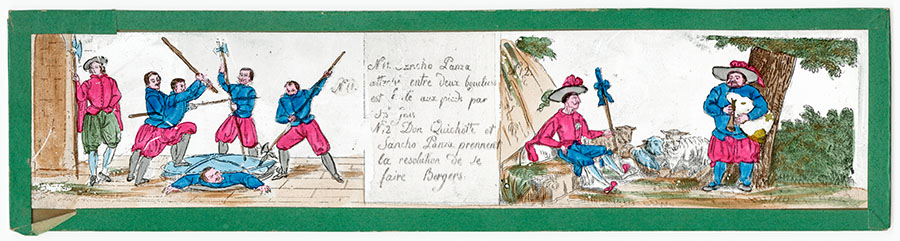 N°1.
N°1. Sancho Panza
entre deux boucliers
est aux pieds par
N°2 Don Quichotte et
Sancho Panza prennent
la resolution de se
faire Bergers.